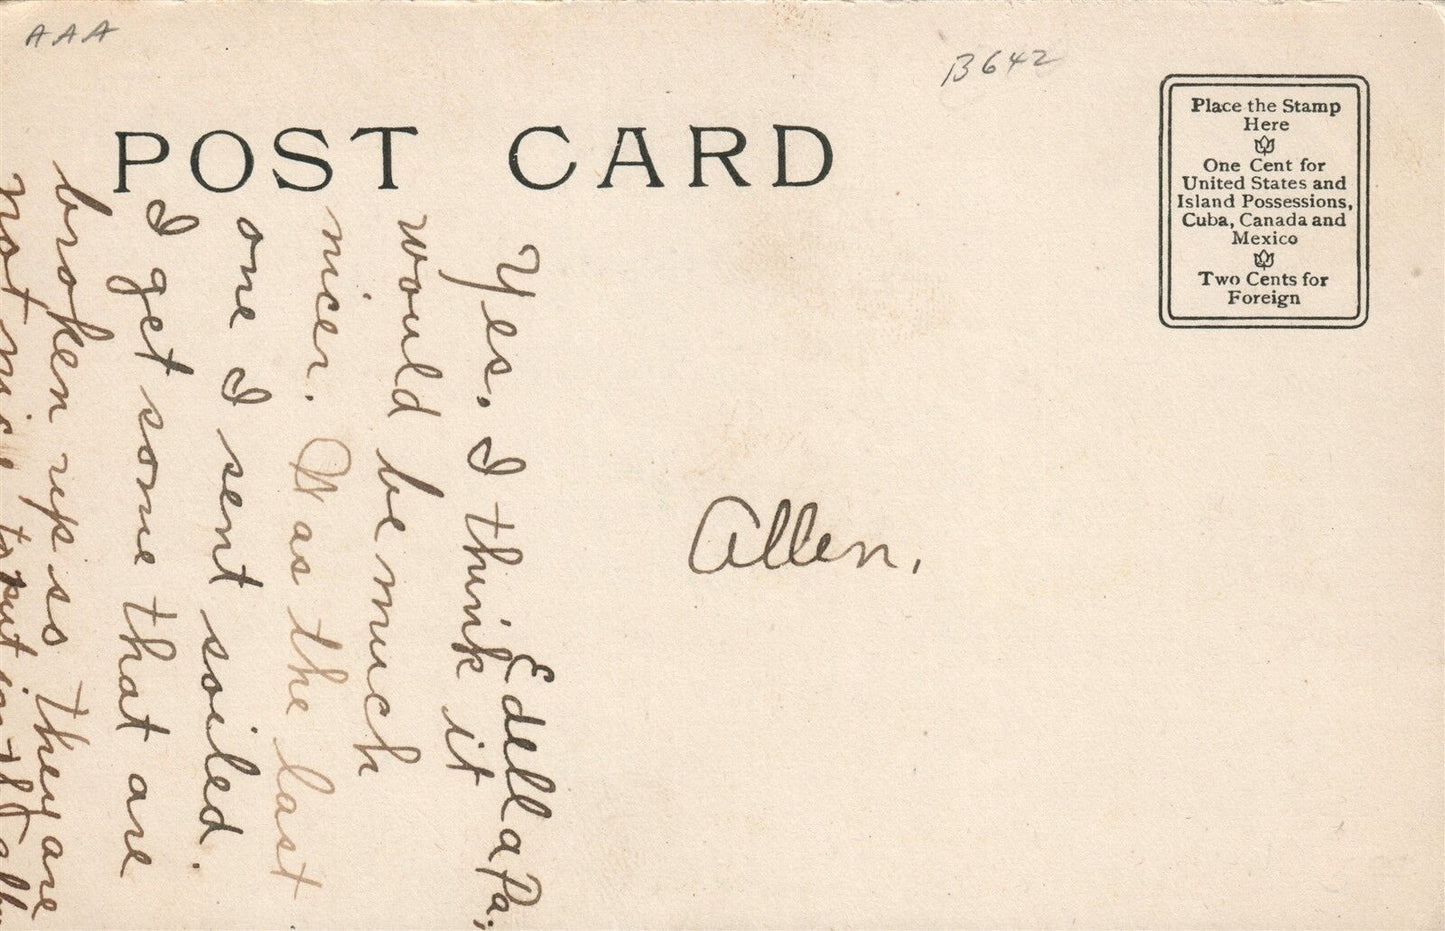 AAA
B642
POST CARD
Place the Stamp
Here
One Cent for
United States and
Island Possessions,
Cuba, Canada and
Mexico
Two Cents for
Foreign
Edella Pa.,
Yes, I think it
would be much
nicer. Was the last
one I sent soiled.
I get some that are
broken up so they are
not nice to put in the
Allen.